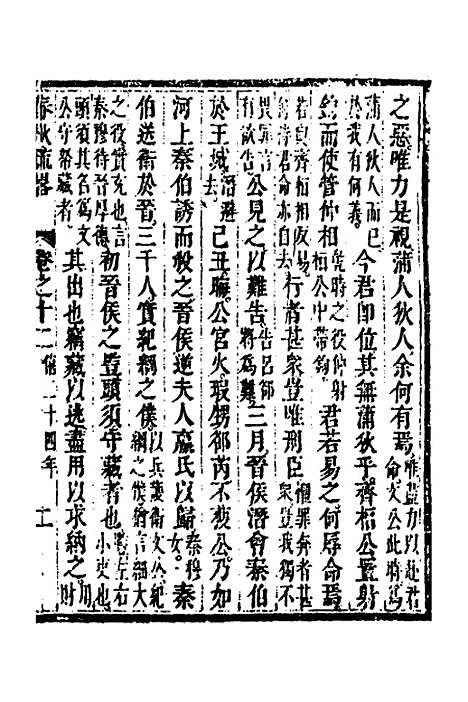 之惡唯力是視蒲人狄人余何有焉唯盡力以赴君命文公此時爲
蒲人狄人而已於我有何義今君卽位其無蒲狄乎齊桓公置射
鉤而使管仲相乾時之役仲射桓公中帶鉤君若易之何辱命焉
若反齊桓相反易則將君命亦自去行者甚衆豈唯刑臣懼罪奔者甚衆豈我獨不
畏罪言有欲告公見之以難告告呂郤將爲難三月晉侯潛會秦伯
於王城潛避去己丑晦公宮火瑕甥郤芮不獲公乃如
河上秦伯誘而殺之晉侯逆夫人嬴氏以歸秦穆女秦
伯送衛於晉三千人實紀綱之僕以兵護衛文公紀綱之僕猶言綱大
之役實充也言秦穆待晉厚德初晉侯之豎頭須守藏者也豎左右小吏也
頭須其名爲文公守帑藏者其出也竊藏以逃盡用以求納之用財
春秋疏畧 卷之十二 僖二十四年 十一